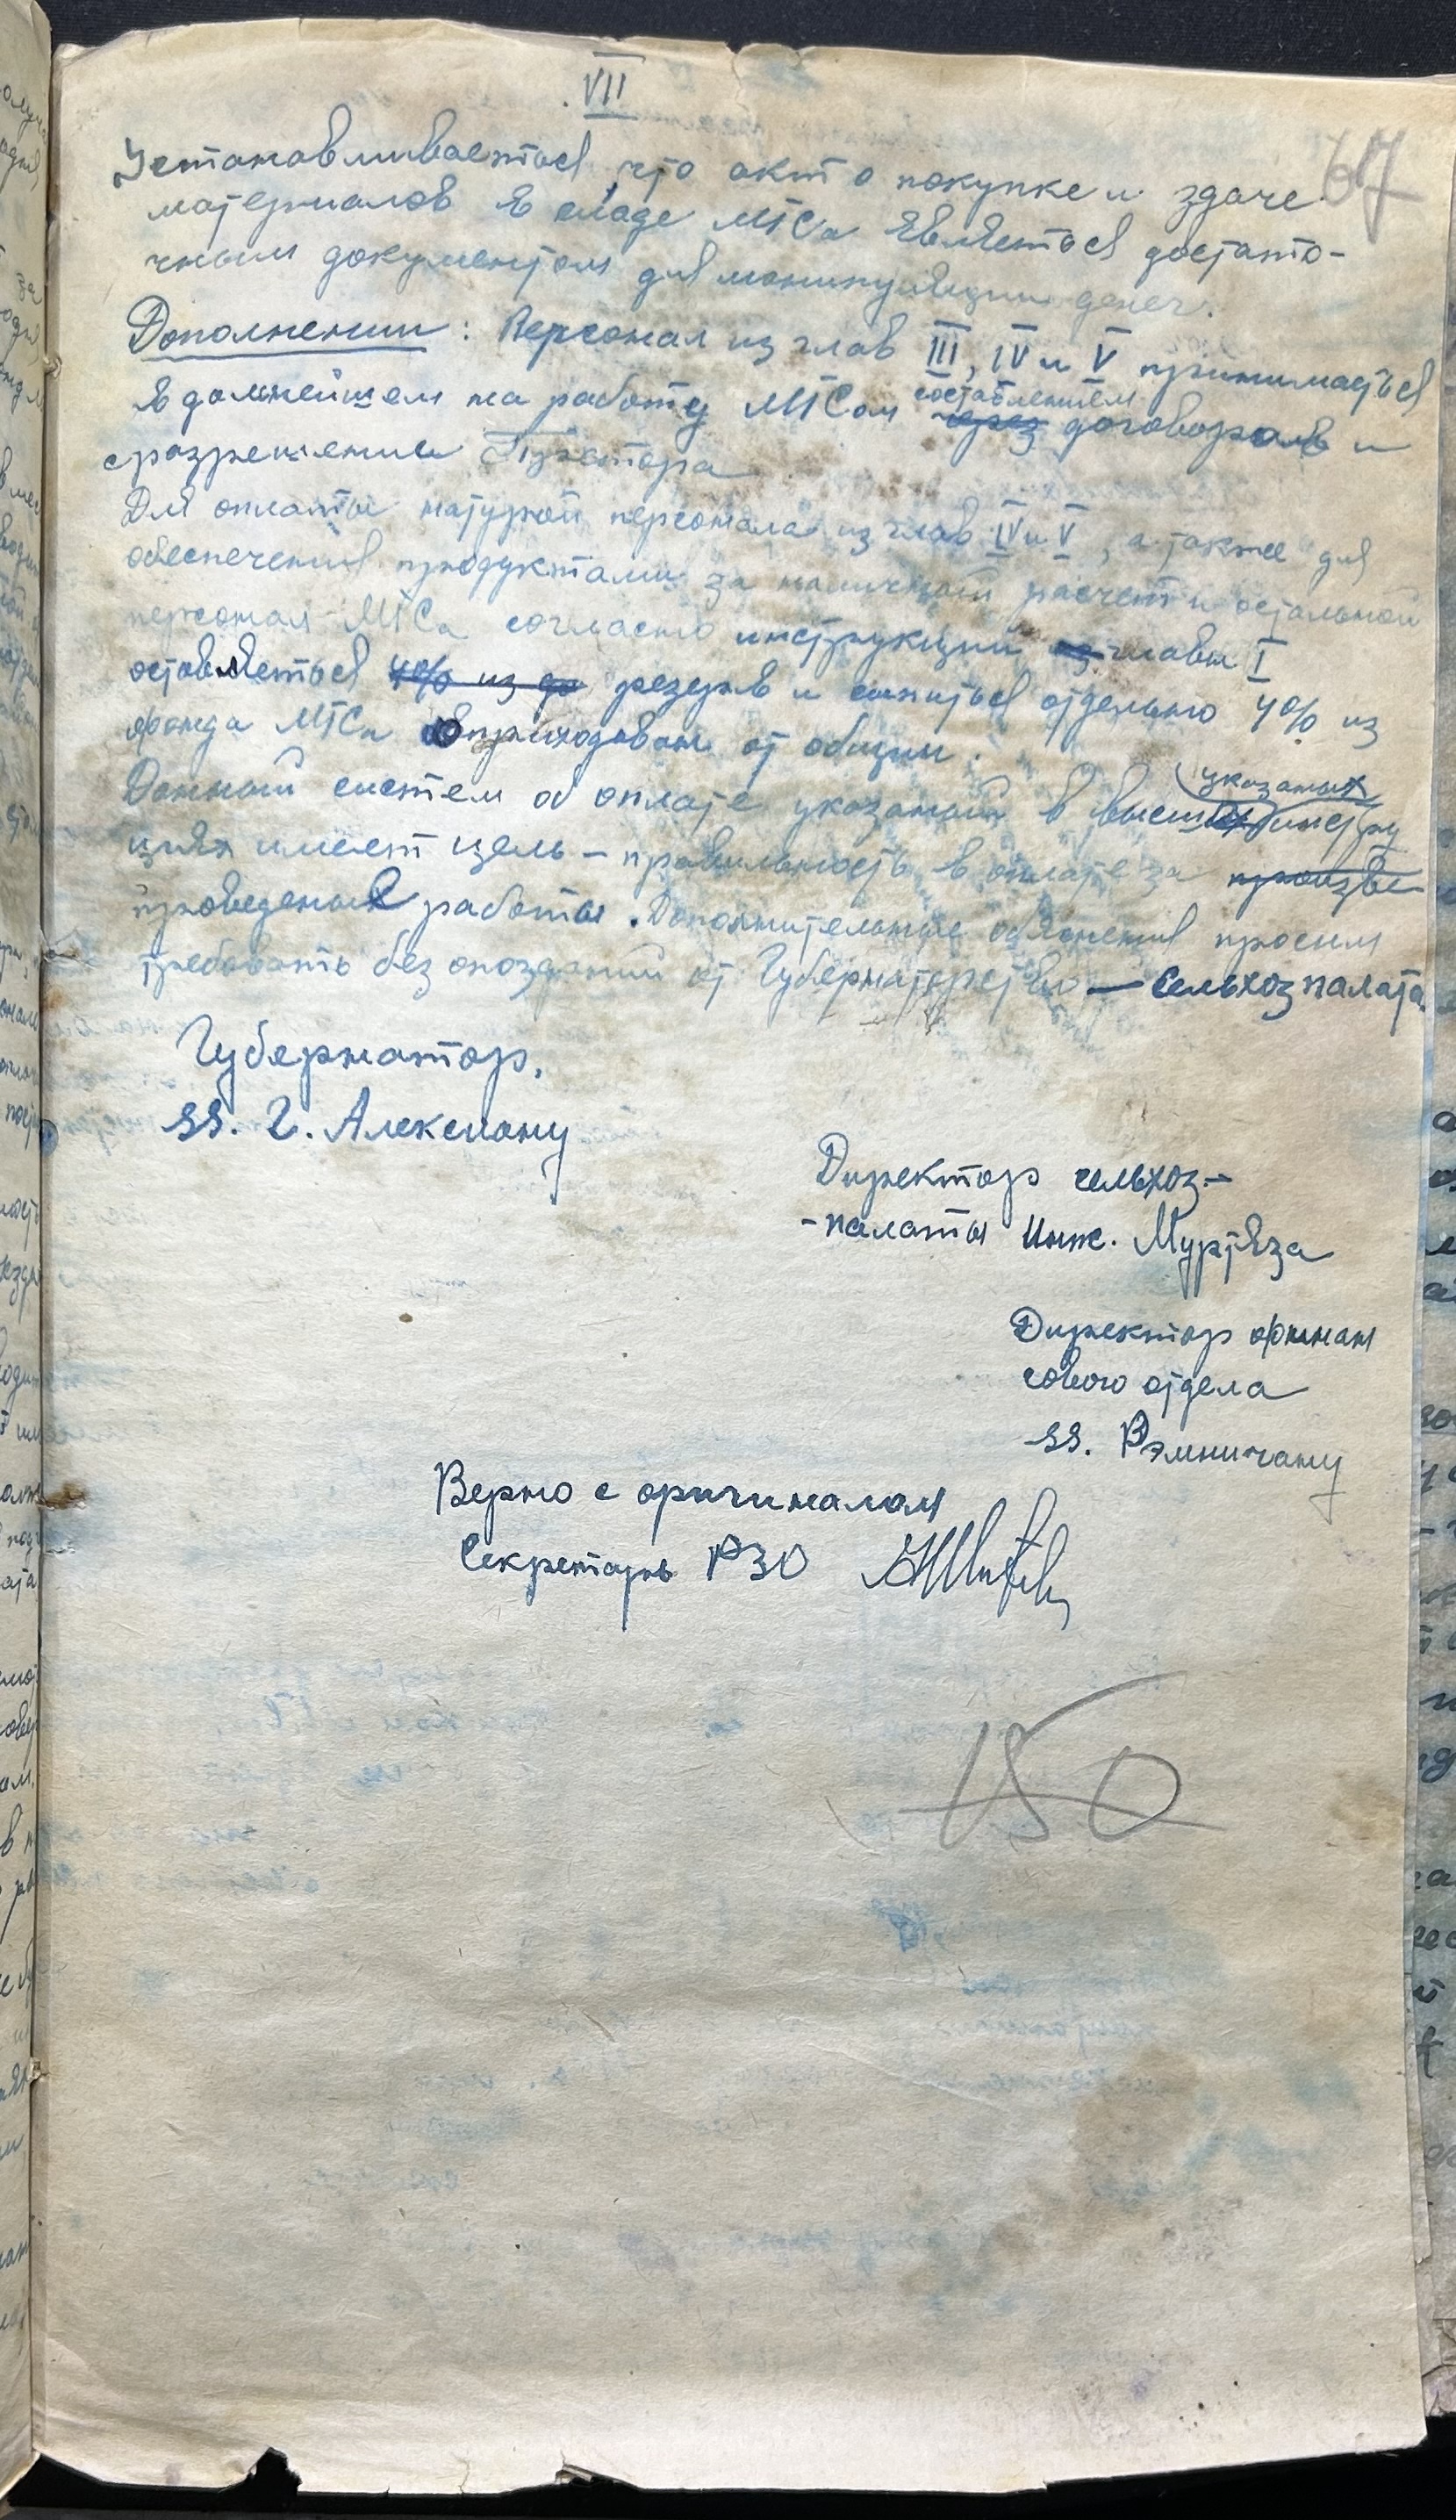 VII
67
Устонавливаеться, что акт о покупке и здаче
материалов в складе МТСа является достато-
чным документом для манипуляции денег.
Дополнении: Персонал из глав III, IV и V принимаеться
в дальнейшем на работу МТСом составлением
через договоров и
с разрешение Претора
Для оплаты натурой персонала из глав IV и V, а также для
обеспечения продуктами за наличный расчет и остальной
персонал МТСа согласно инструкций из главы I
оставляеться 4% из фо резерв и считься отдельно 4% из
фонда МТСа от общин.
указаных
Данный систем об оплате указаный в выше инстру
циях имеет цель – правильность в оплате за произве
проведеные работы. Дополнительные объяснения просим
требовать без опозданий от Губернаторство — Сельхозпалата.
Губернатор,
ss. Г. Алексиану
Директор сельхоз-
-палаты Инж. Муртяза
Директор финан
сового отдела
ss. Рэмничану
Верно с оригиналом
Секретарь РЗО
150